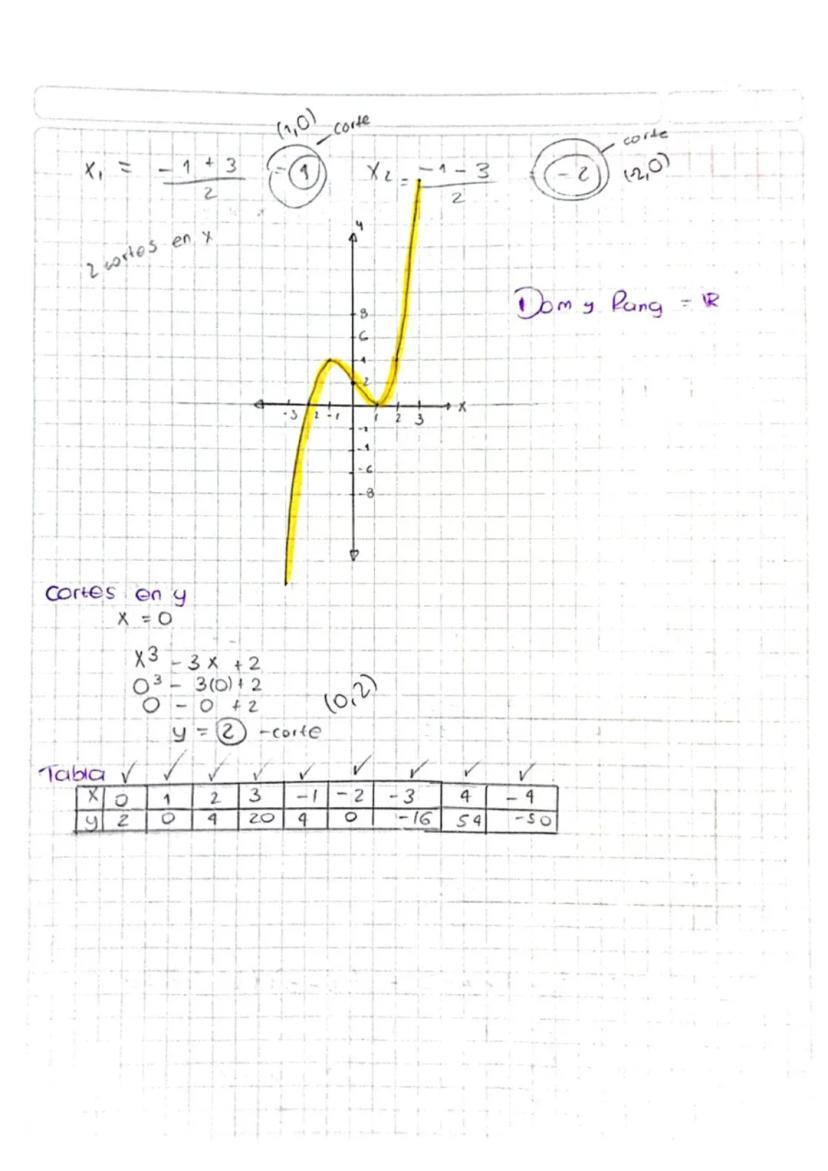 (1,0) corte
corte
x₁ = -1 + 3 / 2 = 1
x₂ = -1 - 3 / 2 = -2 (-2,0)
2 cortes en x
y
Dom y Rang = ℝ
8
6
4
2
-3 -2 -1 1 2 3 x
-2
-4
-6
-8
cortes en y
x = 0
x³ - 3x + 2
0³ - 3(0) + 2
0 - 0 + 2
(0,2)
y = 2 -corte
Tabla ✓ ✓ ✓ ✓ ✓ ✓ ✓ ✓ ✓
x 0 1 2 3 -1 -2 -3 4 -4
y 2 0 4 20 4 0 -16 54 -50